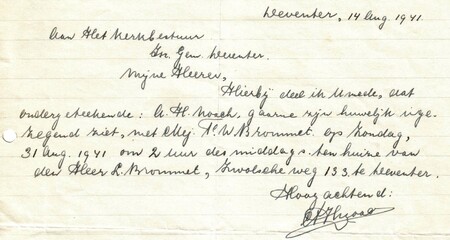 Deventer, 14 Aug. 1941
Aan Het Kerkbestuur
Isr. Gem. Deventer.
Mijne Heeren,
Hierbij deel ik U mede, dat
ondergeteekende: A. H. Noach, gaarne zijn huwelijk inge-
zegend ziet, met Mej. A. W. Brommet, op Zondag,
31 aug. 1941 om 2 uur des middags ten huize van
den Heer L. Brommet, Zwolsche weg 133 te Deventer.
Hoog achtend: